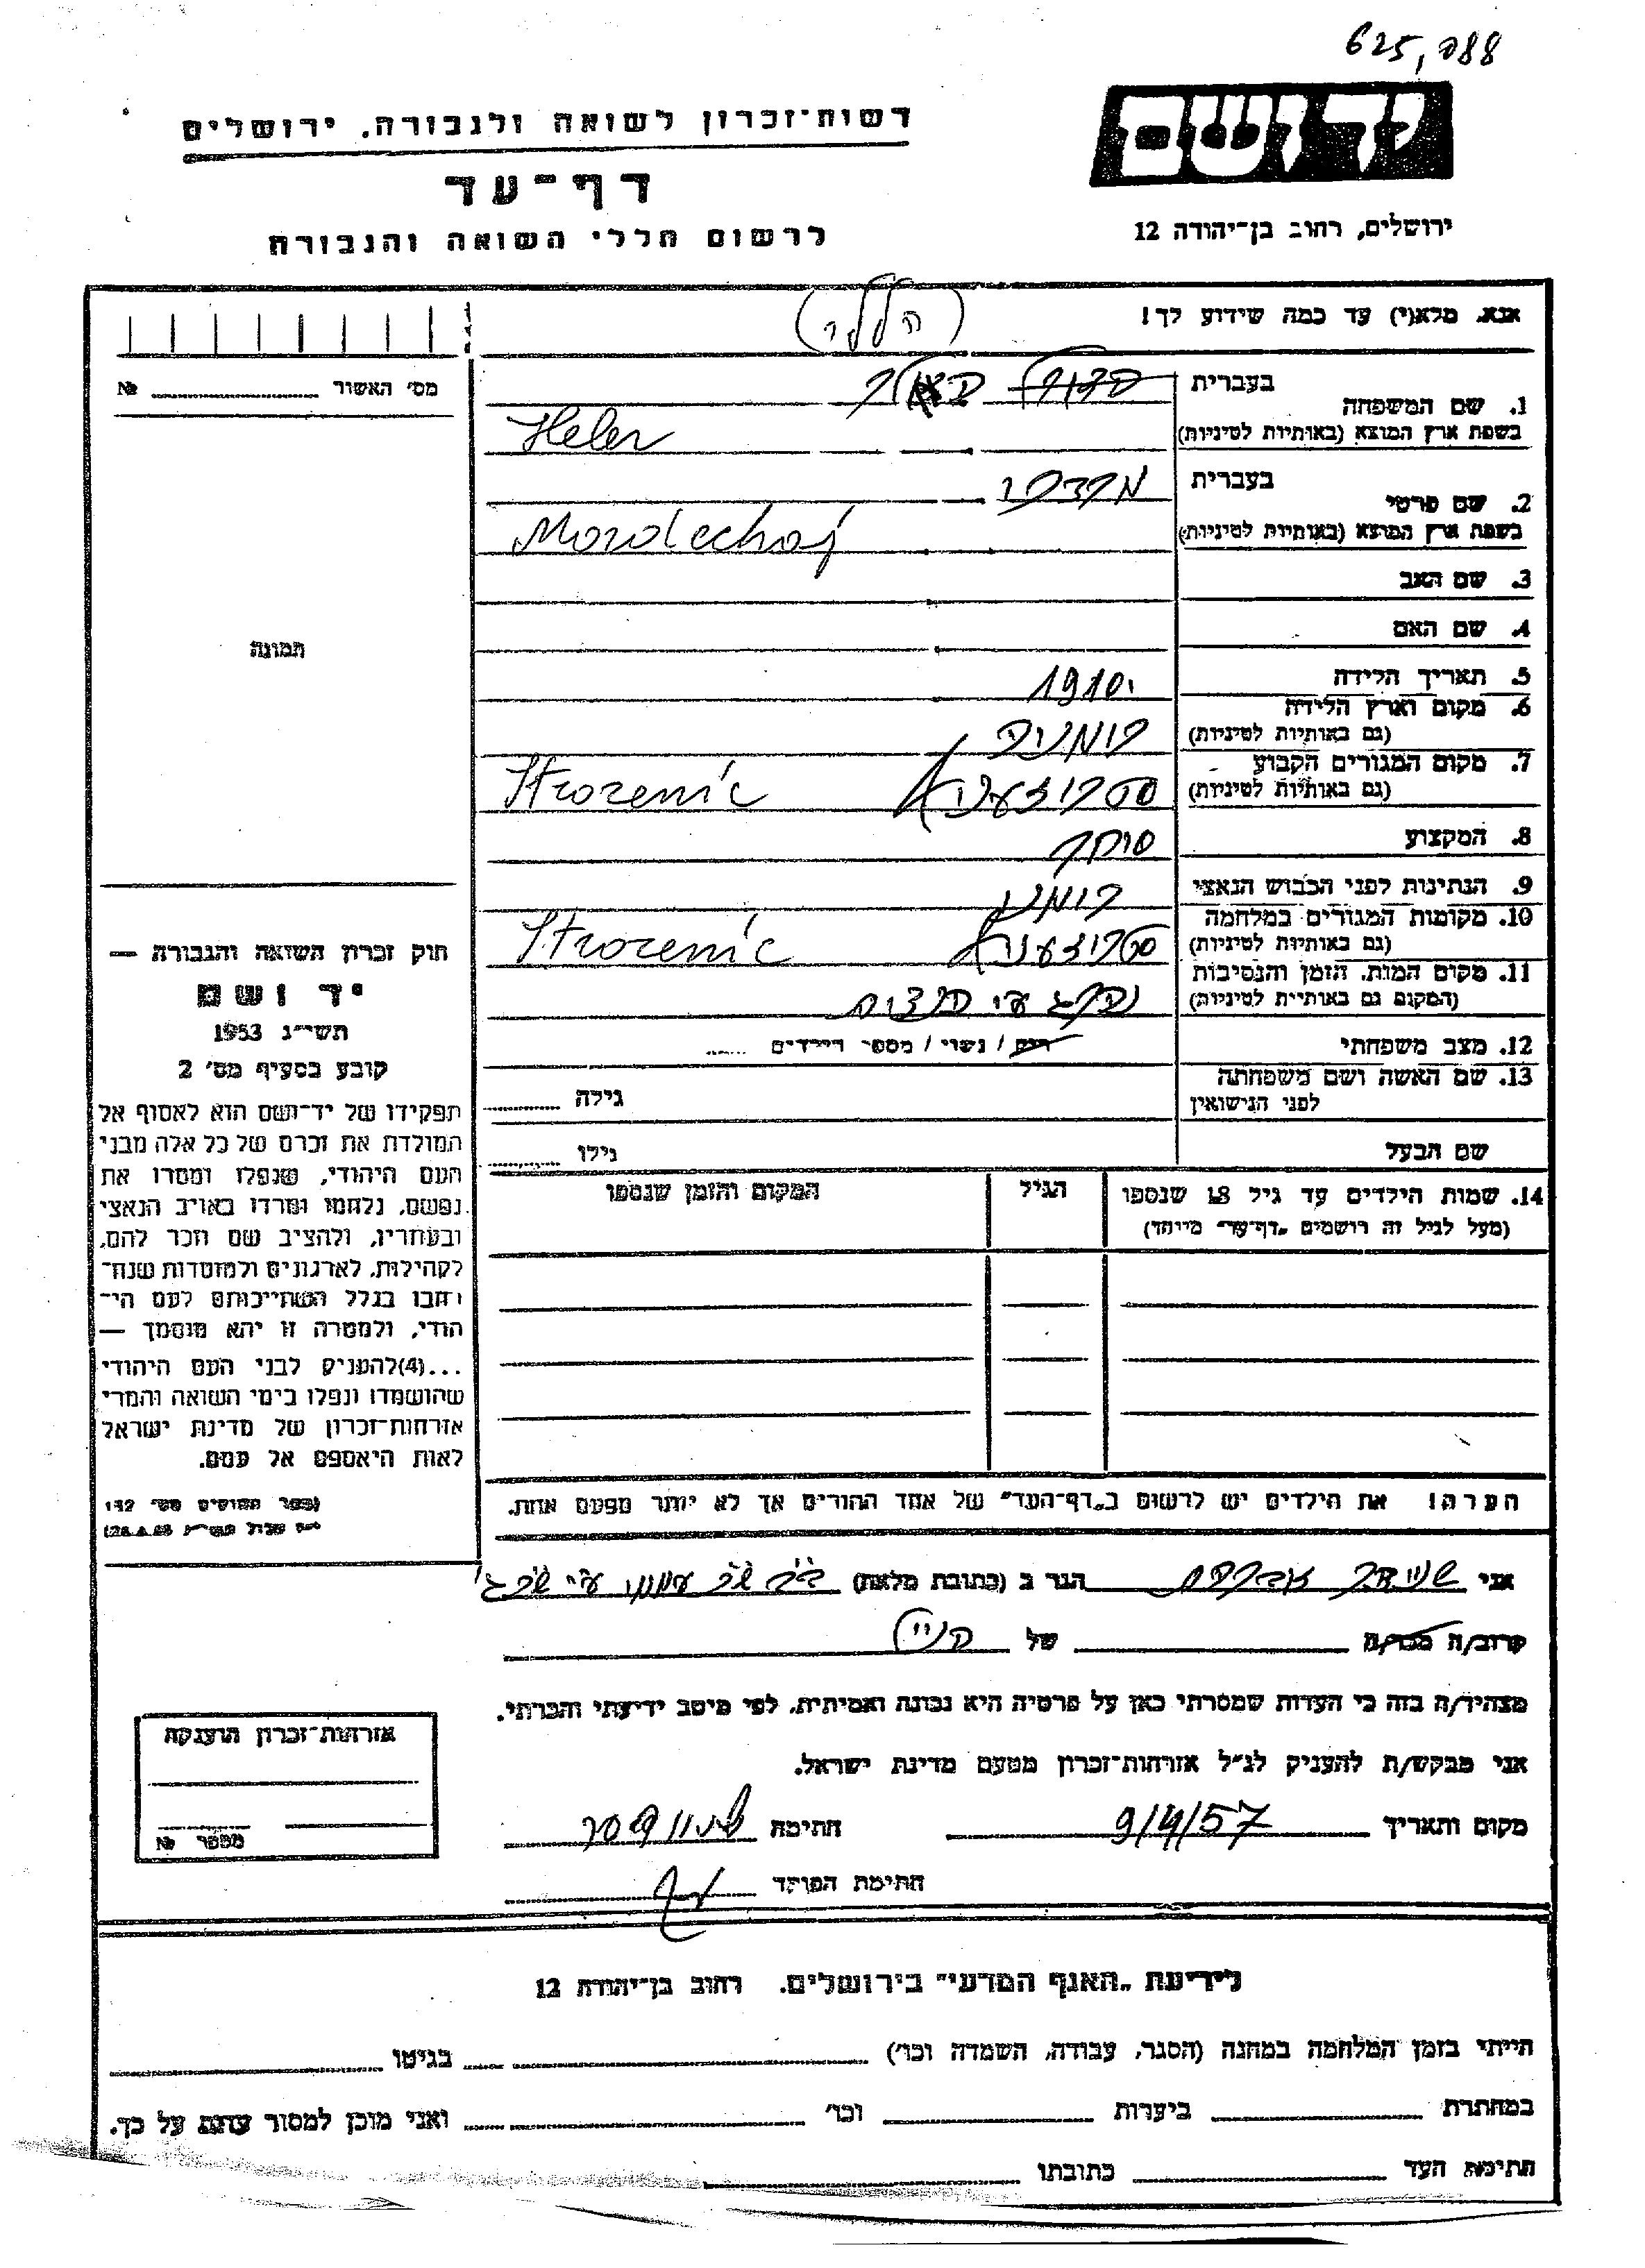 625,788
יד ושם
רשות־זכרון לשואה ולגבורה, ירושלים
דף־עד
לרשום חללי השואה והגבורה
ירושלים, רחוב בן־יהודה 12
אנא, מלא(י) עד כמה שידוע לך!
מס׳ האשור №
תמונה
1. שם המשפחה
בעברית
בשפת ארץ המוצא (באותיות לטיניות) Heler
2. שם פרטי
בעברית מרדכי
בשפת ארץ המוצא (באותיות לטיניות) Mordechaj
3. שם האב
4. שם האם
5. תאריך הלידה 1910
6. מקום וארץ הלידה
(גם באותיות לטיניות) רומניה
7. מקום המגורים הקבוע
(גם באותיות לטיניות) Strozenic
8. המקצוע סוחר
9. הנתינות לפני הכבוש הנאצי רומני
10. מקומות המגורים במלחמה
(גם באותיות לטיניות) Strozenic
11. מקום המות, הזמן והנסיבות
(המקום גם באותיות לטיניות) נהרג ע״י
12. מצב משפחתי רוק / נשוי / מספר הילדים
13. שם האשה ושם משפחתה
לפני הנישואין גילה
שם הבעל גילו
14. שמות הילדים עד גיל 18 שנספו הגיל המקום והזמן שנספו
(מעל לגיל זה רושמים „דף־עד״ מיוחד)
הערה! את הילדים יש לרשום ב„דף־העד״ של אחד ההורים אך לא יותר מפעם אחת.
חוק זכרון השואה והגבורה —
יד ושם
תשי״ג 1953
קובע בסעיף מס׳ 2
תפקידו של יד־ושם הוא לאסוף אל
המולדת את זכרם של כל אלה מבני
העם היהודי, שנפלו ומסרו את
נפשם, נלחמו ומרדו באויב הנאצי
ובעוזריו, ולהציב שם וזכר להם,
לקהילות, לארגונים ולמוסדות שנח־
רבו בגלל השתייכותם לעם הי־
הודי, ולמטרה זו יהא מוסמך —
...(4)להעניק לבני העם היהודי
שהושמדו ונפלו בימי השואה והמרי
אזרחות־זכרון של מדינת ישראל
לאות היאספם אל עמם.
(ספר החוקים מס׳ 132
אני הגר ב (כתובת מלאה)
קרוב/ה מכר/ה של
מצהיר/ה בזה כי העדות שמסרתי כאן על פרטיה היא נכונה ואמיתית, לפי מיטב ידיעתי והכרתי.
אני מבקש/ת להעניק לנ״ל אזרחות־זכרון מטעם מדינת ישראל.
מקום ותאריך 9/4/57 חתימה
חתימת הפוקד
אזרחות־זכרון הוענקה
מספר №
לידיעת „האגף המדעי״ בירושלים. רחוב בן־יהודה 12
הייתי בזמן המלחמה במחנה (הסגר, עבודה, השמדה וכו׳) בגיטו
במחתרת ביערות וכו׳ ואני מוכן למסור עדות על כך.
חתימת העד כתובתו